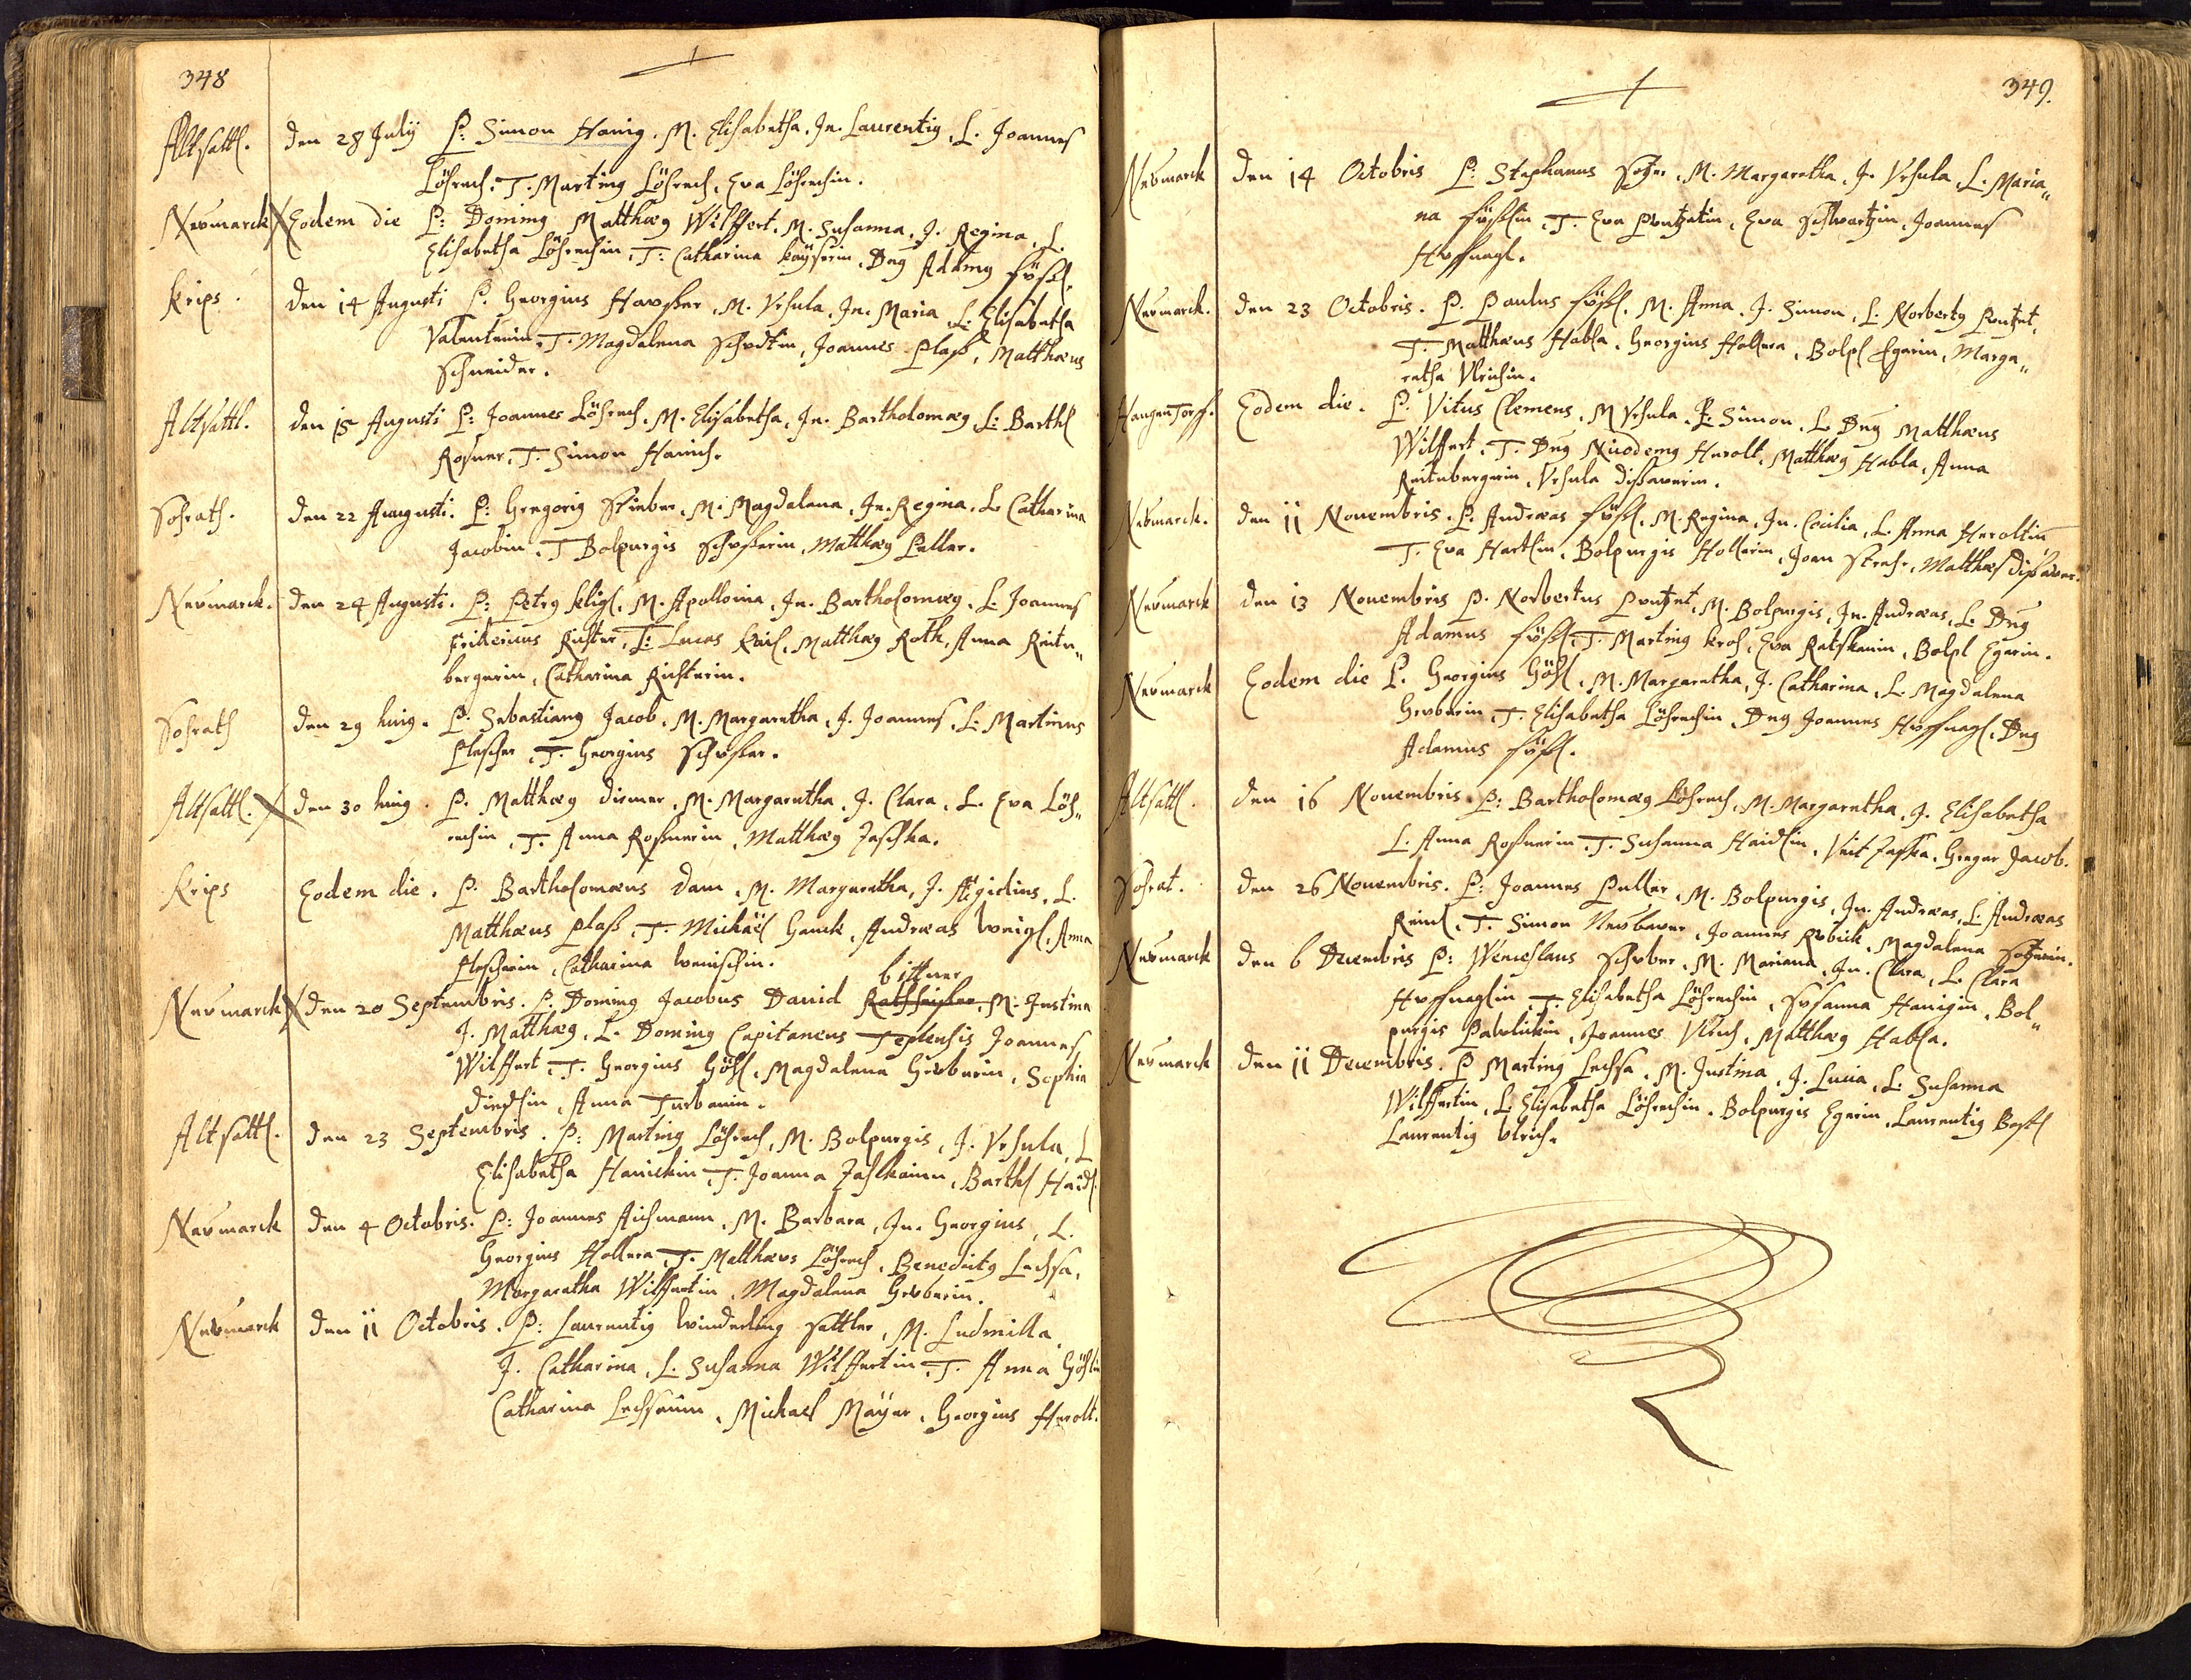 348
Altsattl. den 28 Julÿ P: Simon Hanig, M. Elisabetha, In. Laurentig, L. Joannes
Löhrech, T. Marting Löhrech, Eva Löhrechin.
Neumarck Eodem die P: Doming Matthæg Wilffert, M. Susanna, J. Regina, L.
Elisabetha Löhrechin, T: Catharina Kaÿserin, Dng Adamg füssl.
Krips. den 14 Augusti P. Georgius Hausser, M. Vrsula, In. Maria L. Elisabetha
Valentinin, T. Magdalena Joannes Plass, Matthæus
Schneider.
Altsattl. den 15 Augusti P: Joannes Löhrech, M. Elisabetha, In. Bartholomæg, L: Barthl
Rosner, T. Simon Hanich.
Sohrath. den 22 Augusti. P: Gregorig Stieber, M. Magdalena, In. Regina, L. Catharina
Jacobin, T Bolpurgis Schusterin, Matthæg Peller.
Neumarck. den 24 Augusti. P: Petrg M. Apollonia, In. Bartholomæg, L. Joannes
Fridericus Richter, T: Lucas Matthæg Roth, Anna Reitn„
bergerin, Catharina Richterin.
Sohrath den 29 huig. P. Sebastiang Jacob, M. Margaretha, J. Joannes, L. Martinus
Plescher, T. Georgius Schuster.
Altsattl. den 30 huig. P. Matthæg dirmer, M. Margaretha, J. Clara, L. Eva Löh„
rechin, T. Anna Rosnerin, Matthæg Jaschka.
Krips Eodem die. P. Bartholomæus dam, M. Margaretha, J. Ægidius, L.
Matthæus Plass, T. Michäel Hanck, Andræas Weigl, Anna
Plescherin, Catharina wenischin.
bittner
Neumarck den 20 Septembris. P. Doming Jacobus Dauid M. Justina
J. Matthæg, L. Doming Capitaneus Teplensis Joannes
Wilffert, T. Georgius Götzl, Magdalena Gruberin, Sophia
Anna Turbanin.
Altsattl. den 23 Septembris. P: Marting Löhrech, M. Bolpurgis, J. Vrsula, L
Elisabetha Hanickin, T. Joanna Barthl Haidl.
Neumarck den 4 Octobris. P: Joannes Aichmann, M. Barbara, In. Georgius, L.
Georgius Hollera, T. Matthæus Löhrech, Benedictg Lechsa,
Margaretha Wilffertin, Magdalena Gruberin.
Neumarck den 11 Octobris. P: Laurentig Winderling Sattler, M. Ludmilla
J. Catharina, L. Susanna Wilffertin, T. Anna
Catharina Lechsaiin, Michael Maÿer, Georgius Herolt.
349.
Neumarck den 14 Octobris P: Stephanus M. Margaretha, J. Vrsula, L. Maria„
na füsslin, T. Eva Puntzetin, Eva Schwartzin, Joannes
Huffnagl.
Neumarck. den 23 Octobris. P. Paulus füssl, M. Anna, J. Simon, L. Norbertg Puntzet,
T. Matthæus Habla, Georgius Hollera, Bolpl Egerin, Marga„
retha Vlrichin.
Hangendorff. Eodem die. P. Vitus Clemens, M Vrsula, Simon, L. Dng Matthæus
Wilffert, T. Dng Nicodemg Herolt, Matthæg Habla, Anna
Reitenbergerin, Vrsula dissauerin.
Neumarck. den 11 Nouembris. P. Andræas füssl, M. Regina, In. Cæcilia, L. Anna Heroltin
T. Eva Hartlin, Bolpurgis Hollerin, Joan Matthæs dissauer.
Neumarck den 13 Nouembris P. Norbertus Puntzet, M. Bolpurgis, In. Andræas, L. Dng
Adamus füssl, T. Marting Kroh, Eva Bolpl Egerin.
Neumarck Eodem die P. Georgius Götzl, M. Margaretha, J. Catharina, L. Magdalena
Gruberin, T. Elisabetha Löhrechin, Dng Joannes Huffnagl, Dng
Adamus füssl.
Altsattl. den 16 Nouembris P: Bartholomæg Löhrech, M. Margaretha, J. Elisabetha
L. Anna Rosnerin, T. Susanna Haidlin, Veit Gregor Jacob.
Sohrat. den 26 Nouembris. P: Joannes Puller, M. Bolpurgis, In. Andræas, L. Andræas
T. Simon Neubauer, Joannes Rubick, Magdalena
Neumarck den 6 Decembris P: Wenceslaus Schuber, M. Mariana, In. Clara, L. Clara
Huffnaglin, T. Elisabetha Löhrechin, Susanna Hanigin, Bol„
purgis Pawlickin, Joannes Vlrich, Matthæg Habla.
Neumarck den 11 Decembris. P Marting Lechsa, M. Justina, J. Lucia, L. Susanna
Wilffertin, L Elisabetha Löhrechin, Bolpurgis Egerin, Laurentig
Laurentig Vlrich.